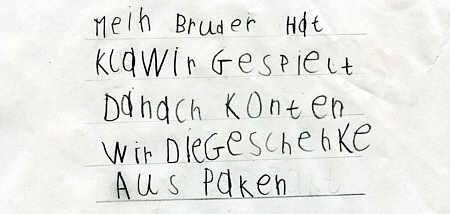 Mein Bruder Hat
KlaWir Gespielt
Danach Konten
Wir DieGeschenke
Aus Paken